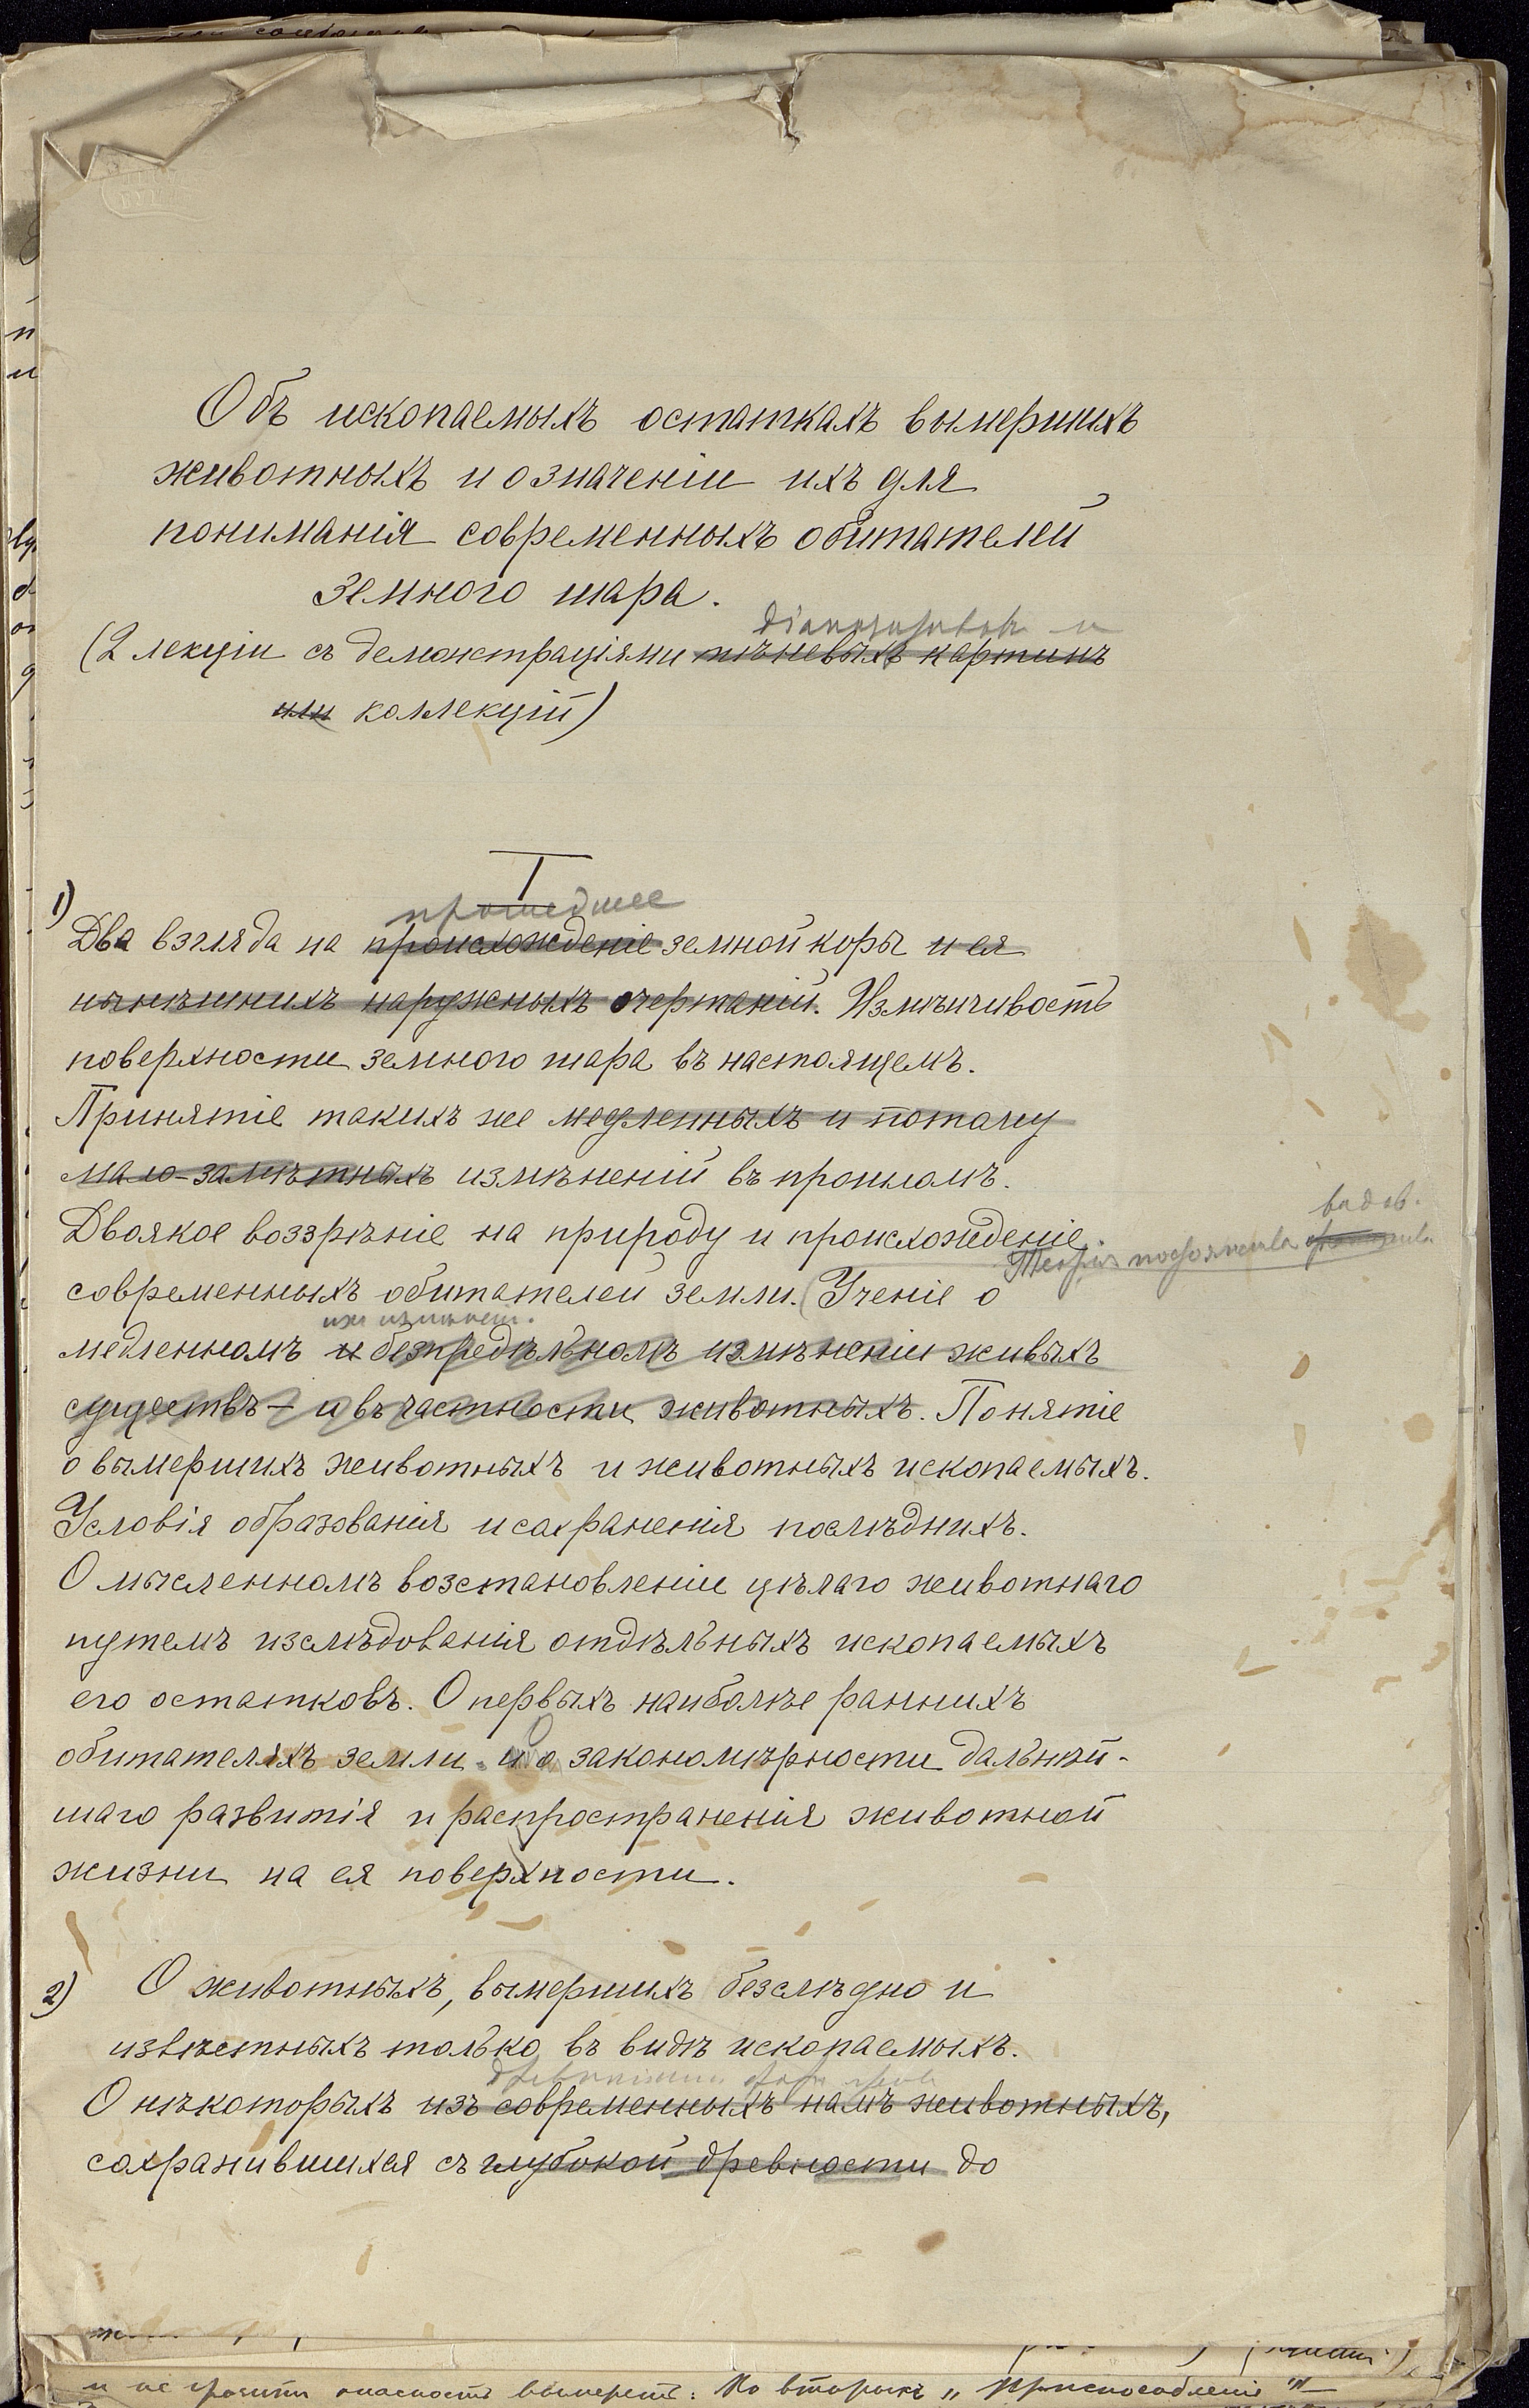 Объ ископаемыхъ остаткахъ вымершихъ
животныхъ и означеніи ихъ для
пониманія современныхъ обитателей
земного шара.
діапозитивовъ и
(2 лекціи съ демонстраціями тѣневыхъ картинъ
или коллекцій)
I
прошедшее
1) Два взгляда на происхожденіе земной коры и ея
нынѣшнихъ наружныхъ очертаній. Измѣнчивость
поверхности земного шара въ настоящемъ.
Принятіе такихъ же медленныхъ и потому
мало-замѣтныхъ измѣненій въ прошломъ.
видов.
Двоякое воззрѣніе на природу и происхожденіе
Теорія постоянства
современныхъ обитателей земли. (Ученіе о
их измѣнен.
медленномъ и безпредѣльномъ измѣненіи живыхъ
существъ – и въ частности животныхъ. Понятіе
о вымершихъ животныхъ и животныхъ ископаемыхъ.
Условія образованія и сохраненія послѣднихъ.
О мысленномъ возстановленіи цѣлаго животнаго
путемъ изслѣдованія отдѣльныхъ ископаемыхъ
его остатковъ. О первыхъ наиболѣе раннихъ
обитателяхъ земли. и о закономѣрности дальнѣй-
шаго развитія и распространенія животной
жизни на ея поверхности.
2) О животныхъ, вымершихъ безслѣдно и
извѣстныхъ только въ видѣ ископаемыхъ.
О нѣкоторыхъ изъ современныхъ намъ животныхъ,
сохранившихся съ глубокой древности до
и не грозитъ опасность вымереть: Во вторыхъ „приспособленіе"